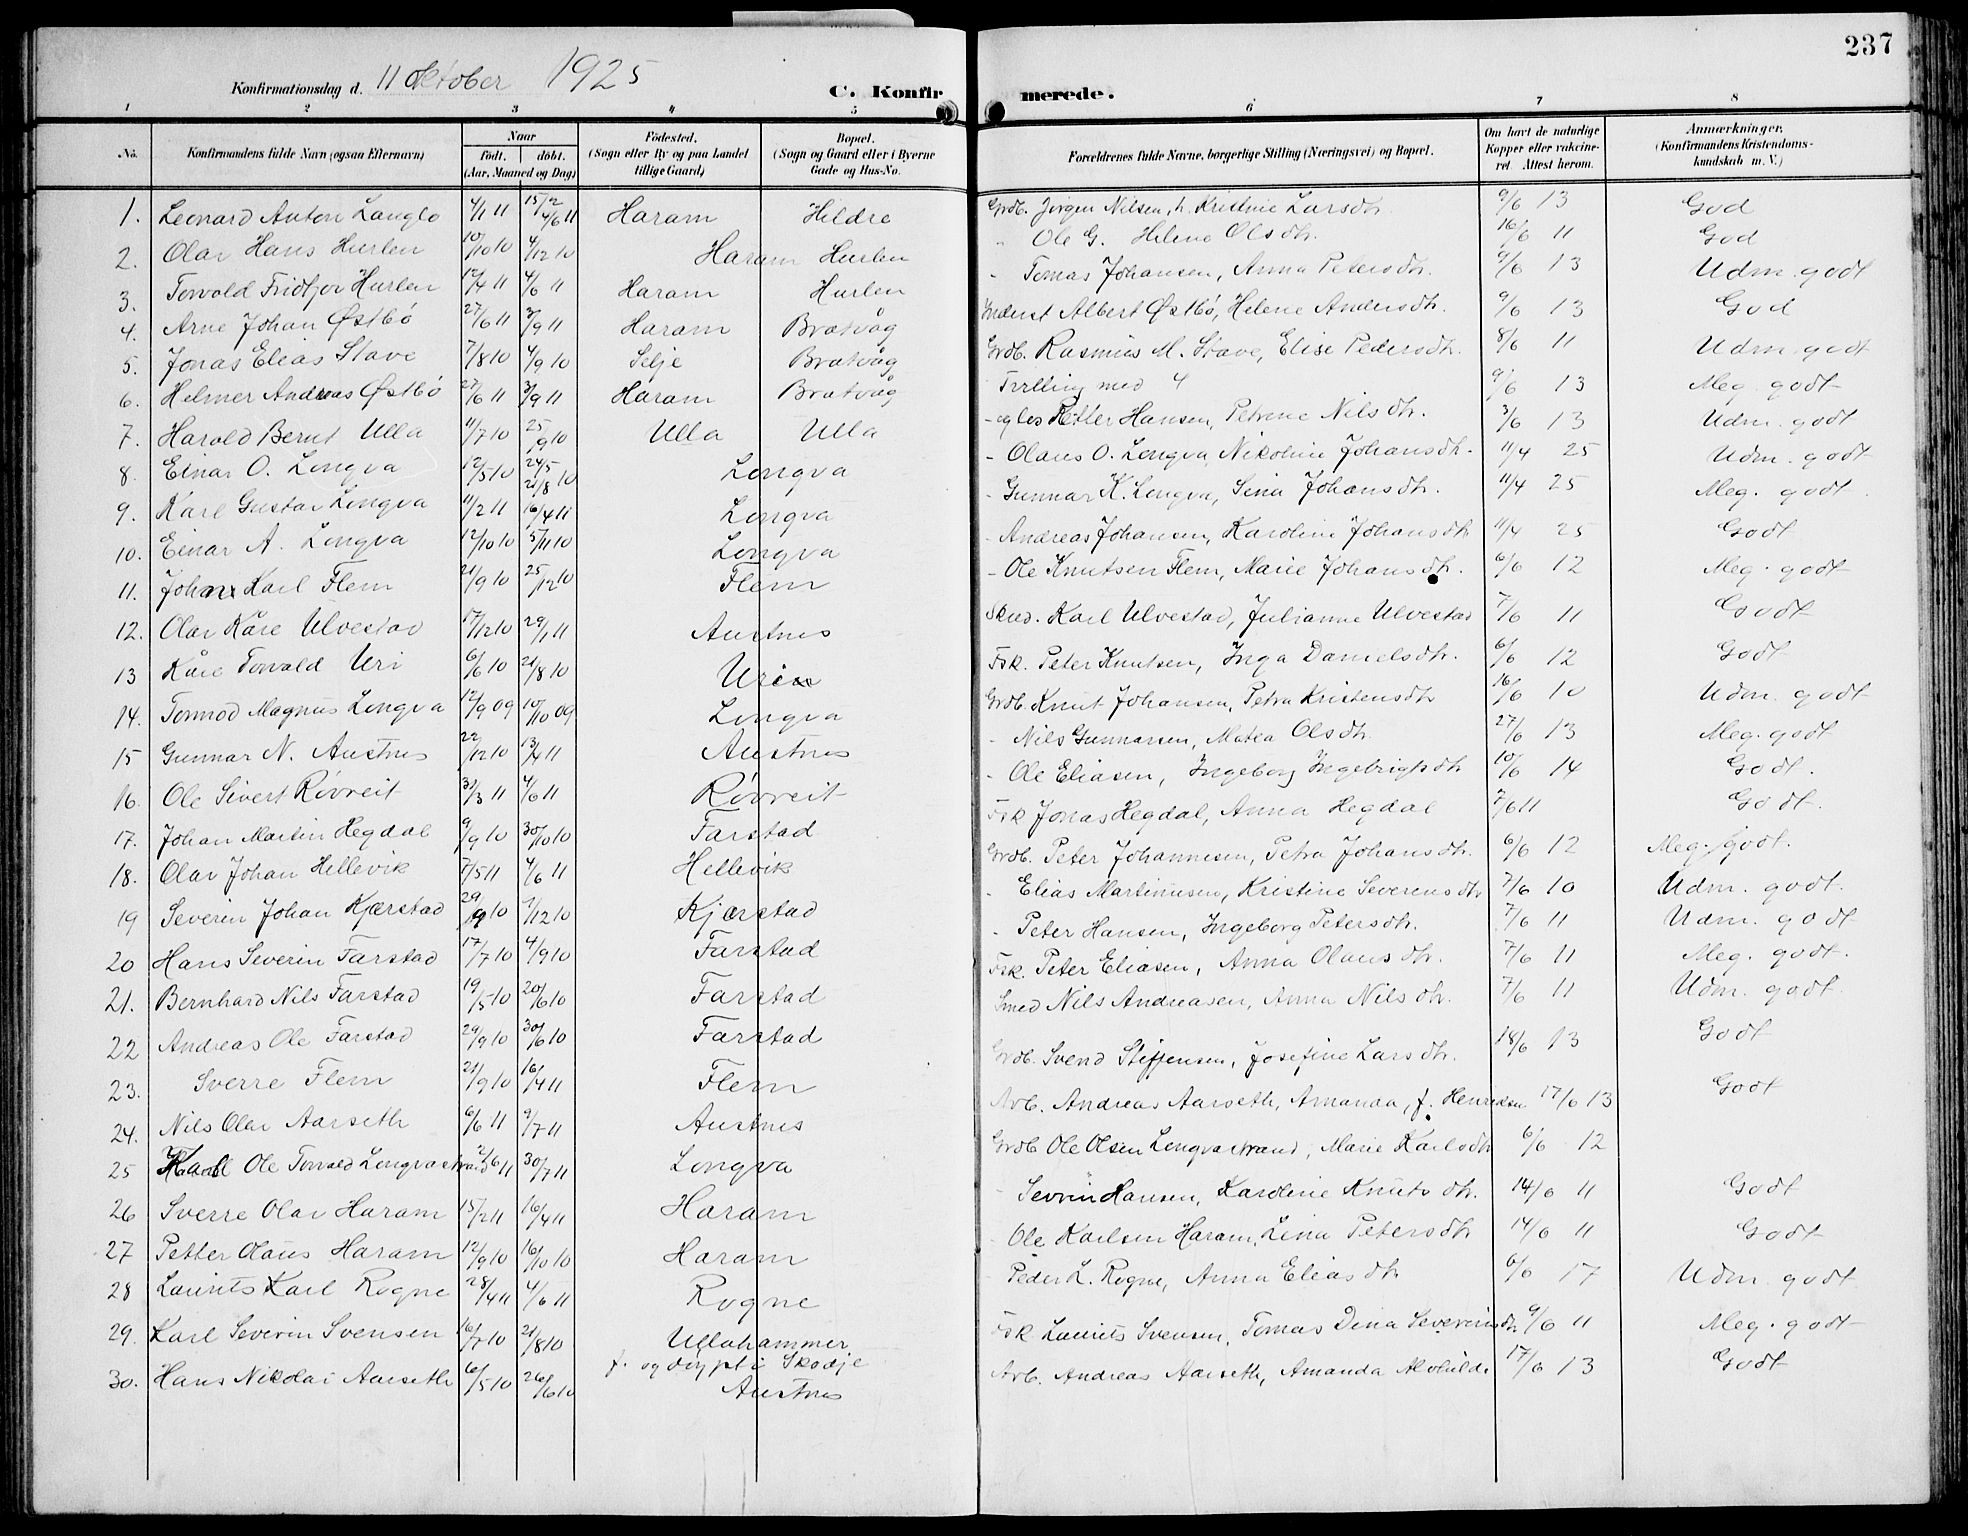 237
Konfirmationsdag d. 11 Oktober 1925 C. Konfirmerede.
1 2 3 4 5 6 7 8
No. Konfirmandens fulde Navn (ogsaa Efternavn) Naar födt. döbt. (Aar, Maaned og Dag) Födested. (Sogn eller By og paa Landet tillige Gaard) Bopæl. (Sogn og Gaard eller i Byerne Gade og Hus-No. Forældrenes fulde Navne, borgerlige Stilling (Næringsvei) og Bopæl. Om havt de naturlige Kopper eller vakcineret Attest herom. Anmærkninger. (Konfirmandens Kristendomskundskab m. V.)
1. Leonard Anton Langlo 4/1 11 15/2 4/6 11 Haram Hildre Grdb. Jørgen Nilsen, h. Kristine Larsdtr. 9/6 13 God
2. Olav Hans Hurlen 10/10 10 4/12 10 Haram Hurlen " Ole G. Helene Olsdtr. 16/6 11 God
3. Torvald Fridtjov Hurlen 12/4 11 4/6 11 Haram Hurlen - Tomas Johansen, Anna Petersdtr. 9/6 13 Udm. godt
4. Arne Johan Østbö 27/6 11 3/9 11 Haram Bratvåg Inderst Albert Østbö, Helene Andersdtr. 9/6 13 God
5. Jonas Elias Stave 7/8 10 4/9 10 Selje Bratvåg Grdb. Rasmus M. Stave, Elise Pedersdtr. 8/6 11 Udm. godt
6. Helmer Andreas Østbö 27/6 11 3/9 11 Haram Bratvåg Tvilling med 4 9/6 13 Meg. godt
7. Harald Bernt Ulla 11/7 10 25/9 10 Ulla Ulla Petter Hansen, Petrine Nilsdtr. 3/6 13 Udm. godt
8. Einar O. Longva 12/5 10 24/5 21/8 10 Longva - Olaus O. Longva, Nikoline Johansdtr. 11/4 25 Udm. godt
9. Karl Gustav Longva 11/2 11 16/4 11 Longva - Gunnar K. Longva, Sina Johansdtr. 11/4 25 Meg. godt
10. Einar A. Longva 12/10 10 5/11 10 Longva - Andreas Johansen, Karoline Johansdtr 11/4 25 Godt
11. Johan Karl Flem 21/9 10 25/12 10 Flem - Ole Knutsen Flem, Marie Johansdtr. 6/6 12 Meg. godt
12. Olav Kåre Ulvestad 17/12 10 29/1 11 Austnes Karl Ulvestad, Julianne Ulvestad 7/6 11 Godt
13 Kåre Torvald Uri 6/6 10 21/8 10 Uri Fsk. Peter Knutsen, Inga Danielsdtr. 6/6 12 Godt
14. Tormod Magnus Longva 12/9 09 10/10 09 Longva Grdb. Knut Johansen, Petra Kristensdtr 16/6 10 Udm. godt
15 Gunnar N. Austnes 22/12 10 13/4 11 Austnes - Nils Gunnarsen, Matea Olsdtr. 27/6 13 Meg. godt
16. Ole Sivert Røvreit 30/3 11 4/6 11 Røvreit - Ole Eliasen, Ingeborg Ingebrigtsdtr 10/6 14 Godt.
17. Johan Martin Hegdal 9/9 10 30/10 10 Farstad Fsk Jonas Hegdal, Anna Hegdal 7/6 11 Godt.
18. Olav Johan Hellevik 7/5 11 4/6 11 Hellevik Grdb. Peter Johannesen, Petra Johansdtr. 6/6 12 Meg. godt.
19 Severin Johan Kjærstad 29/9 10 4/12 10 Kjærstad - Elias Martinusen, Kristine Severensdtr 7/6 10 Udm. godt.
20 Hans Severin Farstad 17/7 10 4/9 10 Farstad - Peter Hansen, Ingeborg Petersdtr. 7/6 11 Udm. godt
21. Bernhard Nils Farstad 19/5 10 20/6 10 Farstad Fsk. Peter Eliasen, Anna Olausdtr. 7/6 11 Meg. godt.
22 Andreas Ole Farstad 29/9 10 30/6 10 Farstad Smed Nils Andreasen, Anna Nilsdtr. 7/6 11 Udm. godt
23. Sverre Flem 21/9 10 16/4 11 Flem Grdb. Svend Steffensen, Josefine Larsdtr. 18/6 13 Godt
24. Nils Olav Aarseth 6/6 11 9/7 11 Austnes Arb. Andreas Aarseth, Amanda, f. 17/6 13 Godt
25 Karl Ole Torvald Longvastrand 2/6 11 30/7 11 Longva Grdb Ole Olsen Longvastrand, Marie Karlsdtr 6/6 12
26 Sverre Olav Haram 15/2 11 16/4 11 Haram - Sevrin Hansen, Karoline Knutsdtr. 14/6 11 Godt
27 Petter Olaus Haram 12/9 10 16/10 10 Haram - Ole Karlsen Haram, Lina Petersdtr 14/6 11 Godt
28 Laurits Karl Rogne 28/4 11 4/6 11 Rogne - Peder L. Rogne, Anna Eliasdtr 6/6 17 Udm. godt
29. Karl Severin Svensen 16/7 10 21/8 10 Ullahammer Fsk Laurits Svensen, Tomas Dina Severinsdtr 9/6 11 Meg. godt
f. og döypt i Skodje
30. Hans Nikolai Aarseth 6/5 10 26/6 10 Austnes Arb. Andreas Aarseth, Amanda Alvhilde 17/6 13 Godt